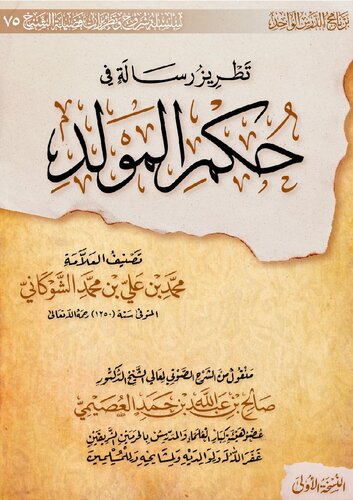 برنامج الدرس الواحد
سلسلة شروح وتطريزات فضيلة الشيخ ٧٥
تطريز رسالة في
حكم المولد
تصنيف العلامة
محمد بن علي بن محمد الشوكاني
المتوفى سنة (١٢٥٠) رحمه الله تعالى
منقول من الشرح الصوتي لمعالي الشيخ الدكتور
صالح بن عبد الله بن حمد العصيمي
عضو هيئة كبار العلماء والمدرس بالحرمين الشريفين
غفر الله له ولوالديه ولمشايخه وللمسلمين
النسخة الأولى